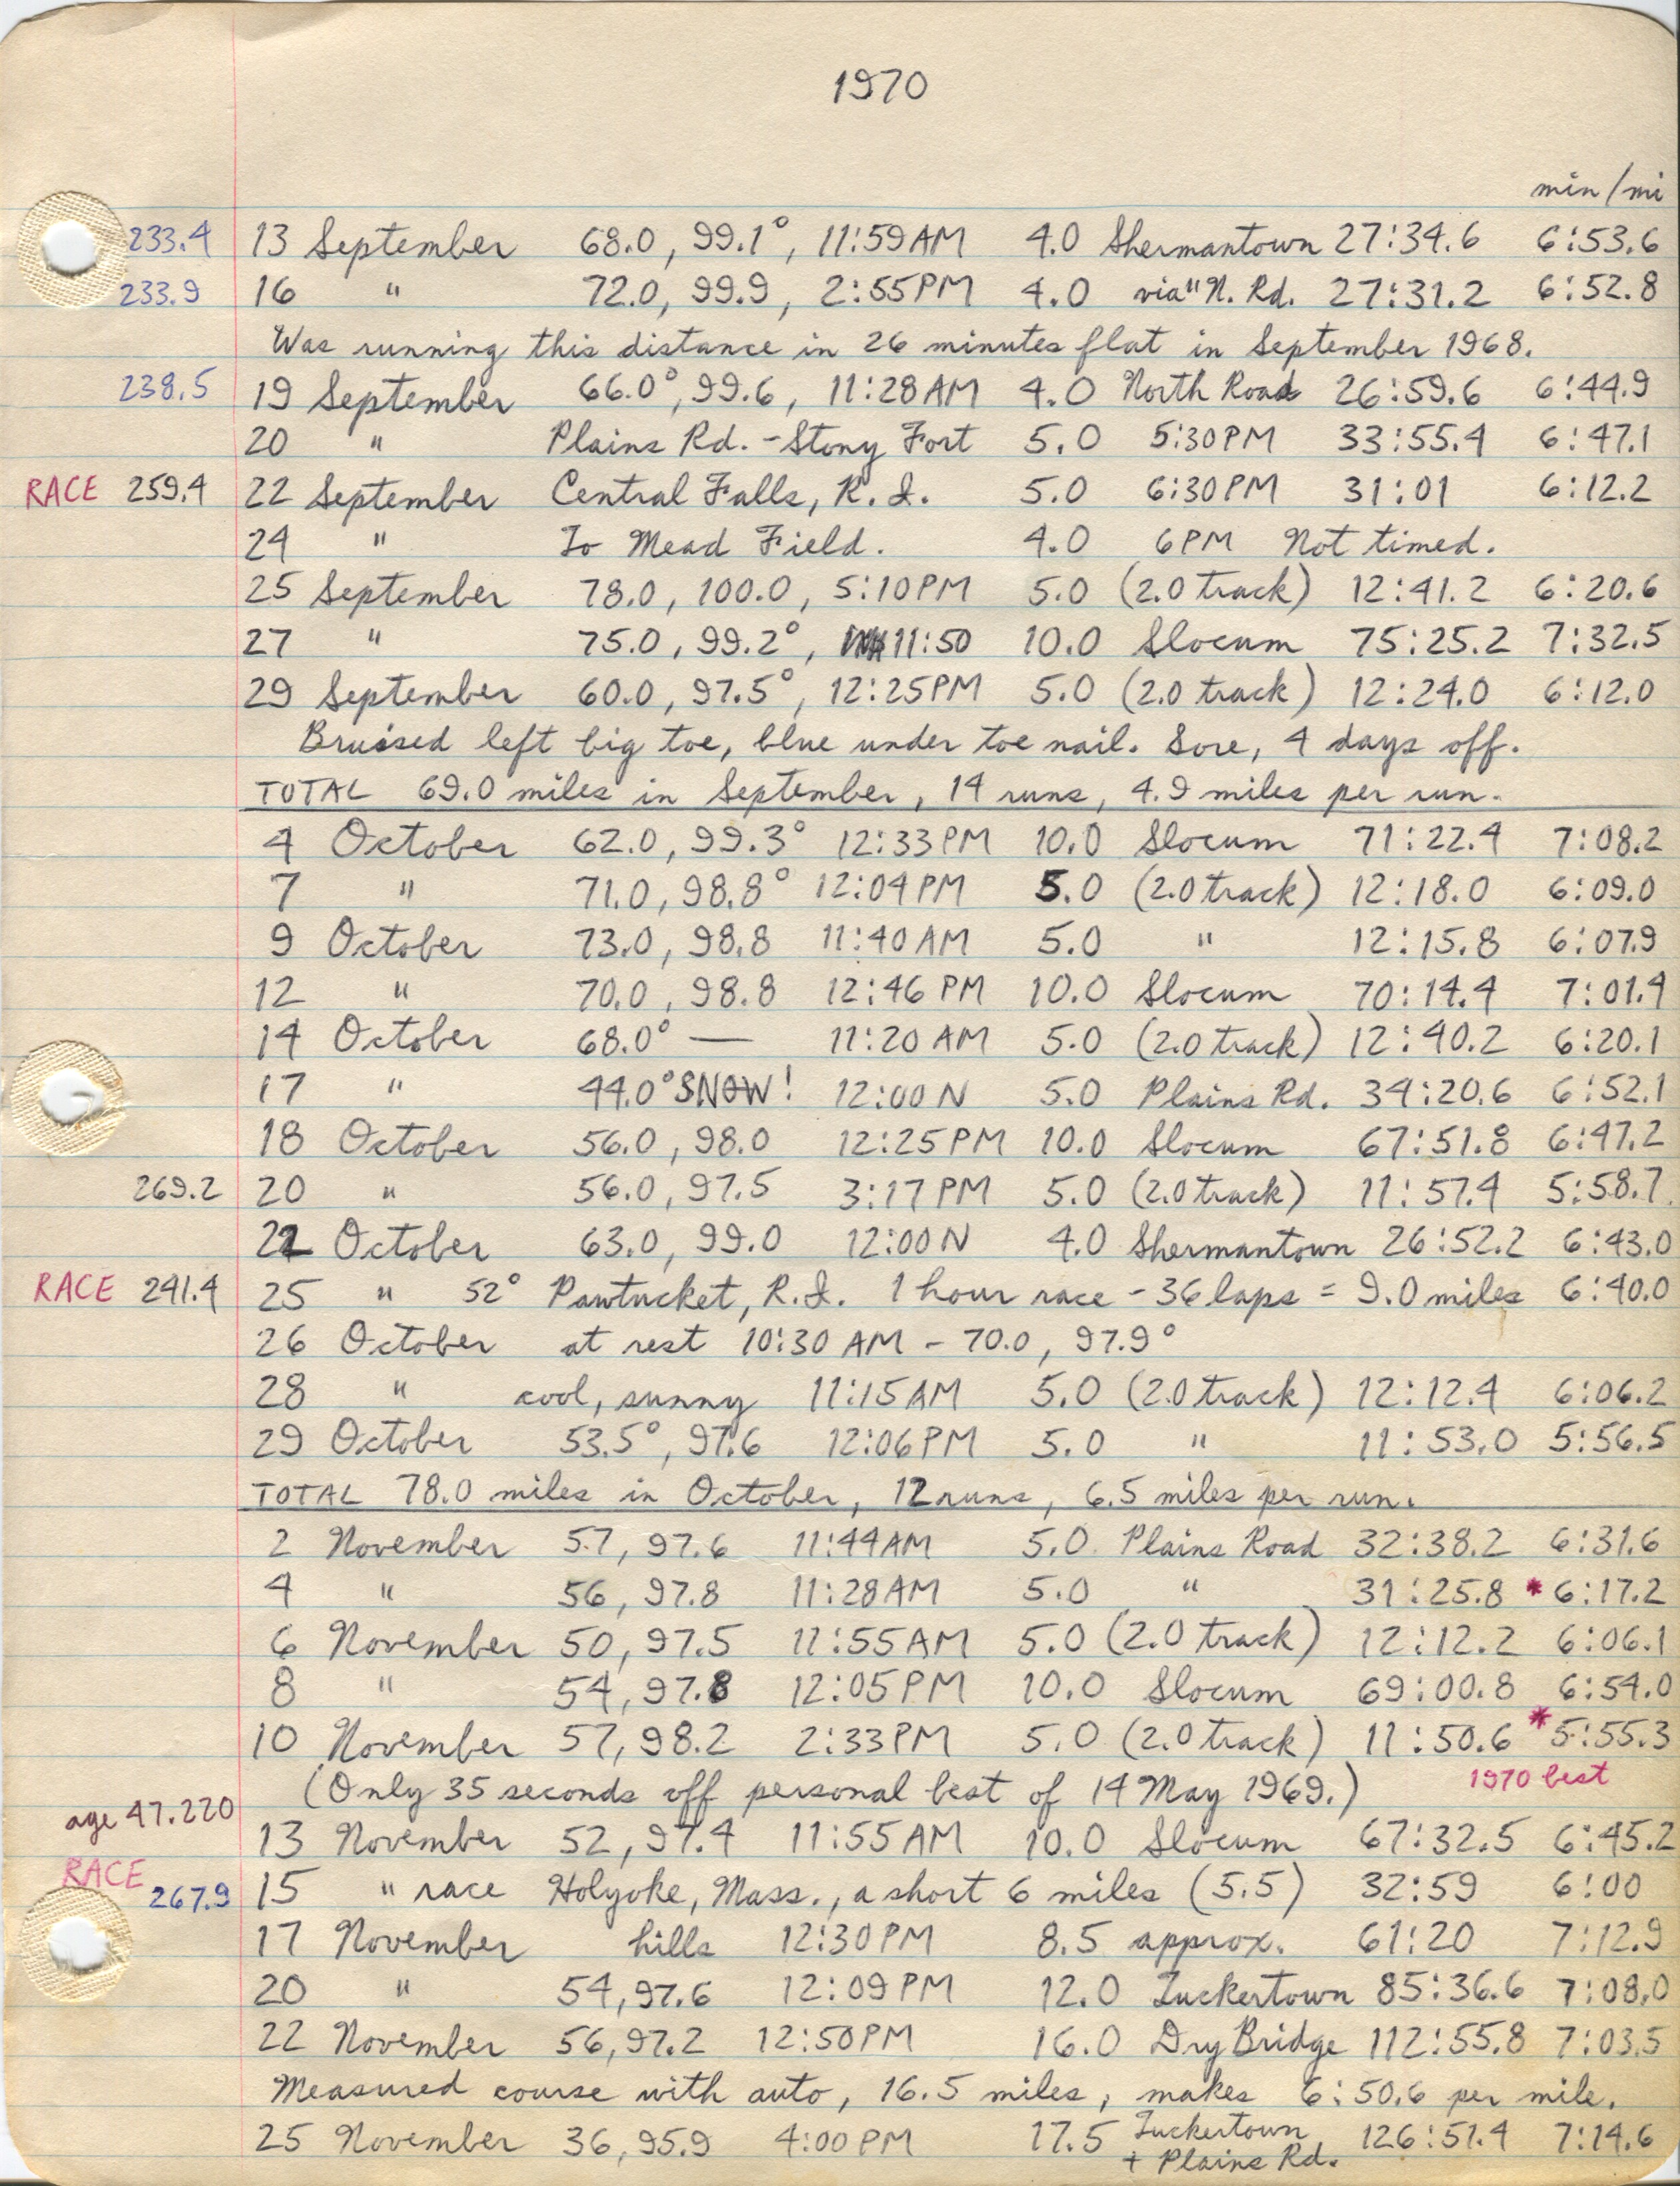 1970
min/mi
233.4 13 September 68.0, 99.1°, 11:59AM 4.0 Shermantown 27:34.6 6:53.6
233.9 16 " 72.0, 99.9, 2:55PM 4.0 via " N. Rd. 27:31.2 6:52.8
Was running this distance in 26 minutes flat in September 1968.
238.5 19 September 66.0°, 99.6, 11:28AM 4.0 North Road 26:59.6 6:44.9
20 " Plains Rd. - Stony Fort 5.0 5:30PM 33:55.4 6:47.1
RACE 259.4 22 September Central Falls, R.I. 5.0 6:30PM 31:01 6:12.2
24 " To Mead Field. 4.0 6PM Not timed.
25 September 78.0, 100.0, 5:10PM 5.0 (2.0 track) 12:41.2 6:20.6
27 " 75.0, 99.2°, 11:50 10.0 Slocum 75:25.2 7:32.5
29 September 60.0, 97.5°, 12:25PM 5.0 (2.0 track) 12:24.0 6:12.0
Bruised left big toe, blue under toe nail. Sore, 4 days off.
TOTAL 69.0 miles in September, 14 runs, 4.9 miles per run.
4 October 62.0, 99.3° 12:33PM 10.0 Slocum 71:22.4 7:08.2
7 " 71.0, 98.8° 12:04PM 5.0 (2.0 track) 12:18.0 6:09.0
9 October 73.0, 98.8 11:40AM 5.0 " 12:15.8 6:07.9
12 " 70.0, 98.8 12:46PM 10.0 Slocum 70:14.4 7:01.4
14 October 68.0° — 11:20AM 5.0 (2.0 track) 12:40.2 6:20.1
17 " 44.0° SNOW! 12:00N 5.0 Plains Rd. 34:20.6 6:52.1
18 October 56.0, 98.0 12:25PM 10.0 Slocum 67:51.8 6:47.2
269.2 20 " 56.0, 97.5 3:17PM 5.0 (2.0 track) 11:57.4 5:58.7
22 October 63.0, 99.0 12:00N 4.0 Shermantown 26:52.2 6:43.0
RACE 241.4 25 " 52° Pawtucket, R.I. 1 hour race - 36 laps = 9.0 miles 6:40.0
26 October at rest 10:30 AM - 70.0, 97.9°
28 " cool, sunny 11:15AM 5.0 (2.0 track) 12:12.4 6:06.2
29 October 53.5°, 97.6 12:06PM 5.0 " 11:53.0 5:56.5
TOTAL 78.0 miles in October, 12 runs, 6.5 miles per run.
2 November 57, 97.6 11:44AM 5.0 Plains Road 32:38.2 6:31.6
4 " 56, 97.8 11:28AM 5.0 " 31:25.8 * 6:17.2
6 November 50, 97.5 11:55AM 5.0 (2.0 track) 12:12.2 6:06.1
8 " 54, 97.8 12:05PM 10.0 Slocum 69:00.8 6:54.0
10 November 57, 98.2 2:33PM 5.0 (2.0 track) 11:50.6 * 5:55.3
(Only 35 seconds off personal best of 14 May 1969.) 1970 best
age 47.220 13 November 52, 97.4 11:55AM 10.0 Slocum 67:32.5 6:45.2
RACE 267.9 15 " race Holyoke, Mass., a short 6 miles (5.5) 32:59 6:00
17 November hills 12:30PM 8.5 approx. 61:20 7:12.9
20 " 54, 97.6 12:09PM 12.0 Tuckertown 85:36.6 7:08.0
22 November 56, 97.2 12:50PM 16.0 Dry Bridge 112:55.8 7:03.5
Measured course with auto, 16.5 miles, makes 6:50.6 per mile.
25 November 36, 95.9 4:00PM 17.5 Tuckertown + Plains Rd. 126:51.4 7:14.6